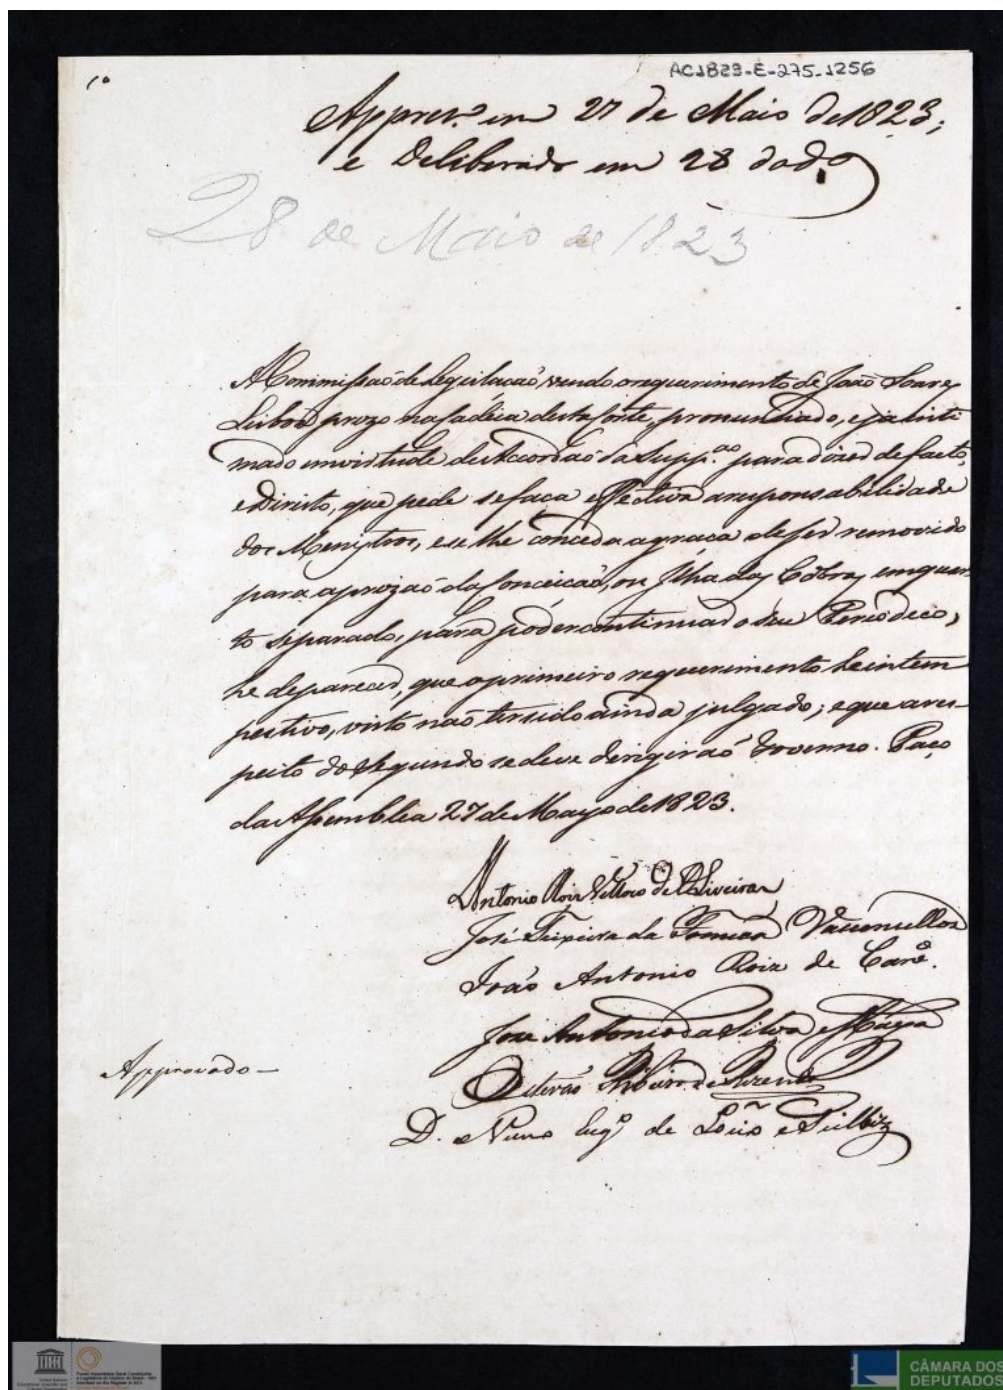 1º
AC1823-E-275-1256
Apprez.º em 27 de Maio de 1823;
e Deliberado em 28 do dº
28 de Maio de 1823
A Commissaõ de Legislacaõ vendo o requerimento de Joaõ Soares
Lisboa prezo na Cadêia desta Corte, pronunciado, e ja inti
mado em virtude de Accordaõ da Supp.ᵃᵒ para dizer de facto,
e Direito, que pede se faça effectiva a responsabilidade
dos Menistros, e se lhe conceda a graça de ser removido
para a prizaõ da Conceicaõ, ou Ilha das Cobras, em quar
to separado, para poder continuar o seu Periodico,
he de parecer, que o primeiro requerimento he intem
pestivo, visto naõ ter sido ainda julgado; e que a res-
peito do segundo se deve derigir aõ Governo. Paço
da Assemblea 27 de Mayo de 1823.
Antonio Roiz Velloso de Oliveira
José Teixeira da Fonseca Vasconcellos
João Antonio Roiz de Carv.º
Joze Antonio da Silva Maya
Estevão Ribeiro de Rezende
D. Nuno Eug.º de Locio e Seilbiz
Approvado —
CÂMARA DOS
DEPUTADOS